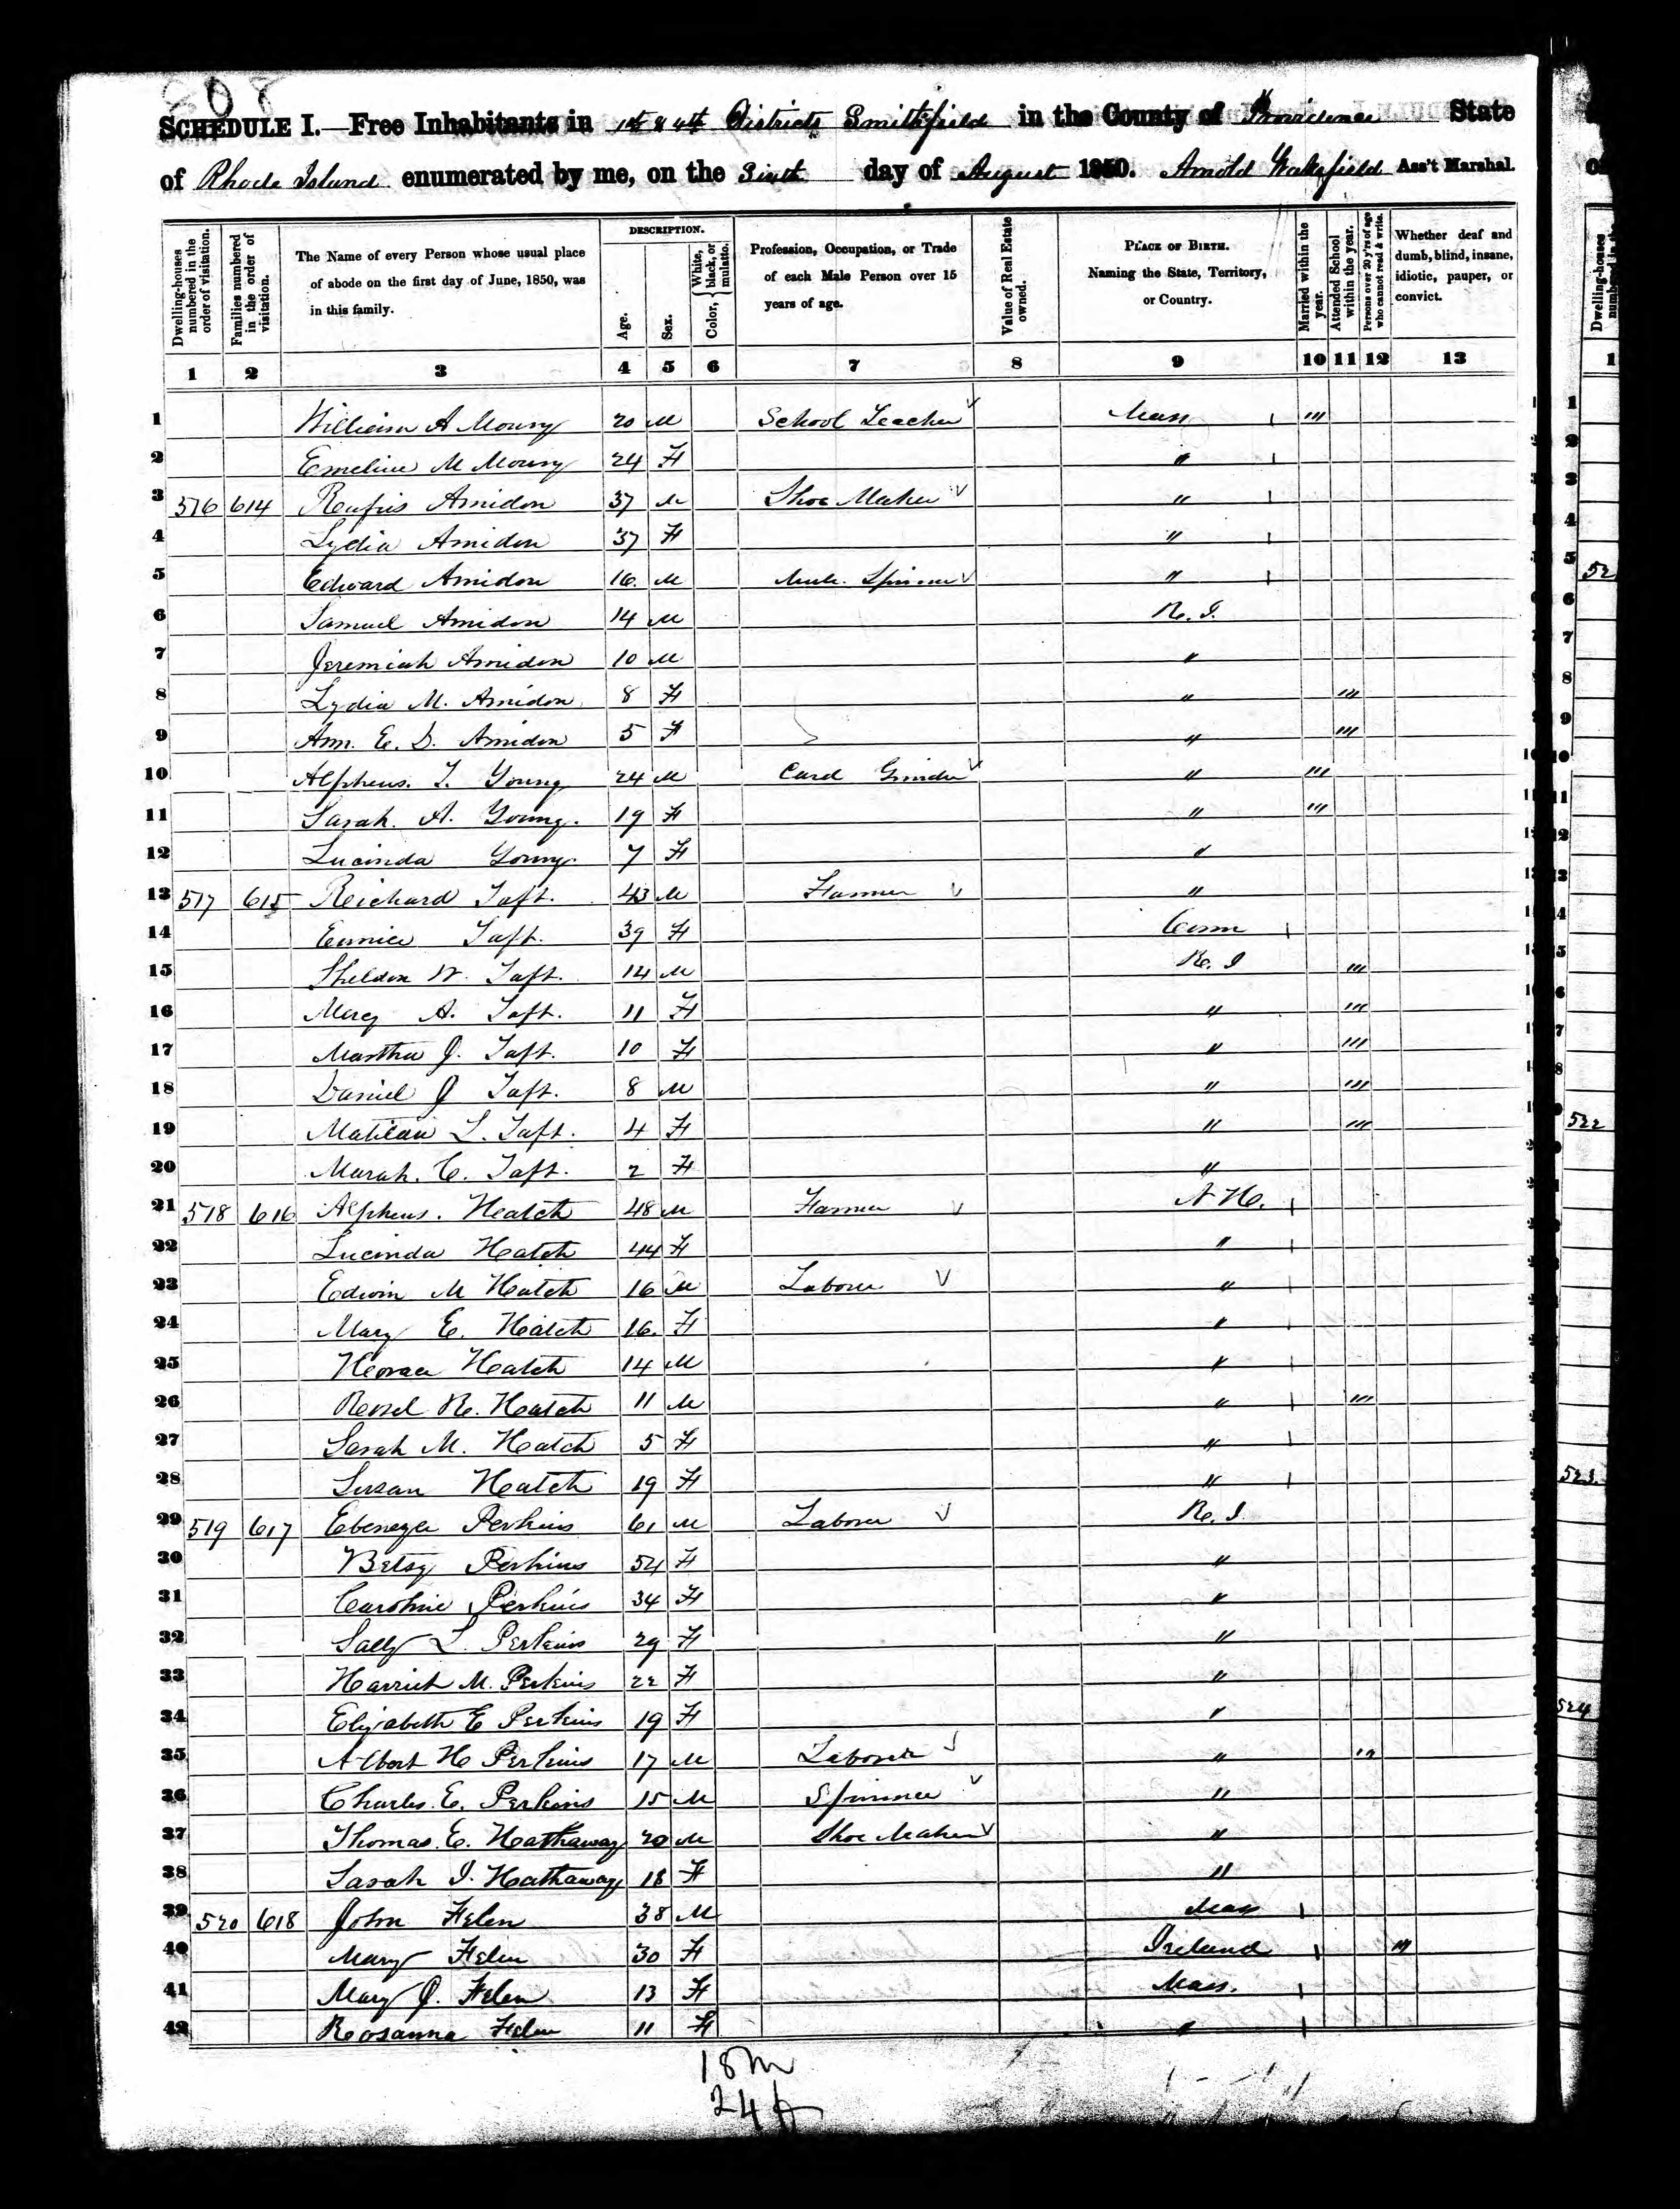 808
SCHEDULE I.—Free Inhabitants in 1st & 4th Districts Smithfield in the County of Providence State
of Rhode Island enumerated by me, on the Sixth day of August 1850. Arnold Wakefield Ass't Marshal.
Dwelling-houses numbered in the order of visitation.
Families numbered in the order of visitation.
The Name of every Person whose usual place of abode on the first day of June, 1850, was in this family.
DESCRIPTION.
Age.
Sex.
Color, { White, black, or mulatto.
Profession, Occupation, or Trade of each Male Person over 15 years of age.
Value of Real Estate owned.
PLACE OF BIRTH. Naming the State, Territory, or Country.
Married within the year.
Attended School within the year.
Persons over 20 y'rs of age who cannot read & write.
Whether deaf and dumb, blind, insane, idiotic, pauper, or convict.
1 2 3 4 5 6 7 8 9 10 11 12 13
1 William A Moury 20 M School Teacher Mass ,,,
2 Emeline M Moury 24 F "
3 516 614 Rufus Amidon 37 M Shoe Maker "
4 Lydia Amidon 37 F "
5 Edward Amidon 16 M Mule Spinner "
6 Samuel Amidon 14 M R. I.
7 Jeremiah Amidon 10 M "
8 Lydia M. Amidon 8 F " ,,,
9 Ann. E. D. Amidon 5 F " ,,,
10 Alpheus. T. Young 24 M Card Grinder " ,,,
11 Sarah. A. Young. 19 F " ,,,
12 Lucinda Young. 7 F "
13 517 615 Richard Taft. 43 M Farmer "
14 Eunice Taft. 39 F Conn
15 Sheldon W. Taft. 14 M R. I ,,,
16 Mary A. Taft. 11 F " ,,,
17 Martha J. Taft. 10 F " ,,,
18 Daniel J Taft. 8 M " ,,,
19 Matilda L. Taft. 4 F " ,,,
20 Marah. C. Taft. 2 F "
21 518 616 Alpheus. Hatch 48 M Farmer N H.
22 Lucinda Hatch 44 F "
23 Edwin M Hatch 16 M Laborer "
24 Mary E. Hatch 16. F "
25 Horace Hatch 14 M "
26 R. Hatch 11 M " ,,,
27 Sarah M. Hatch 5 F "
28 Susan Hatch 19 F "
29 519 617 Ebenezer Perkins 61 M Laborer R. I.
30 Betsy Perkins 54 F "
31 Caroline Perkins 34 F "
32 Sally L. Perkins 29 F "
33 Harriet M. Perkins 22 F "
34 Elizabeth E Perkins 19 F "
35 Albert H Perkins 17 M Laborer " ,,
36 Charles. E. Perkins 15 M Spinner "
37 Thomas. E. Hathaway 20 M Shoe Maker "
38 Sarah I. Hathaway 18 F "
39 520 618 John Felen 38 M Mass
40 Mary Felen 30 F Ireland ,,,
41 Mary J. Felen 13 F Mass.
42 Rosanna Felen 11 F "
18 m
24 f
Dwelling-houses
1
522
523.
524